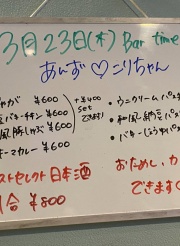 3月23日(木) Bar time
あいず♡こりちゃん
ジャガ ¥600
バターチキン ¥600
風豚しゃぶ ¥600
キーマカレー ¥600
+¥400
set
できます♪
・ウニクリームパスタ
・和風納豆パスタ
・バター
ストセレクト日本酒
合 ¥800
おためし、カ
できます